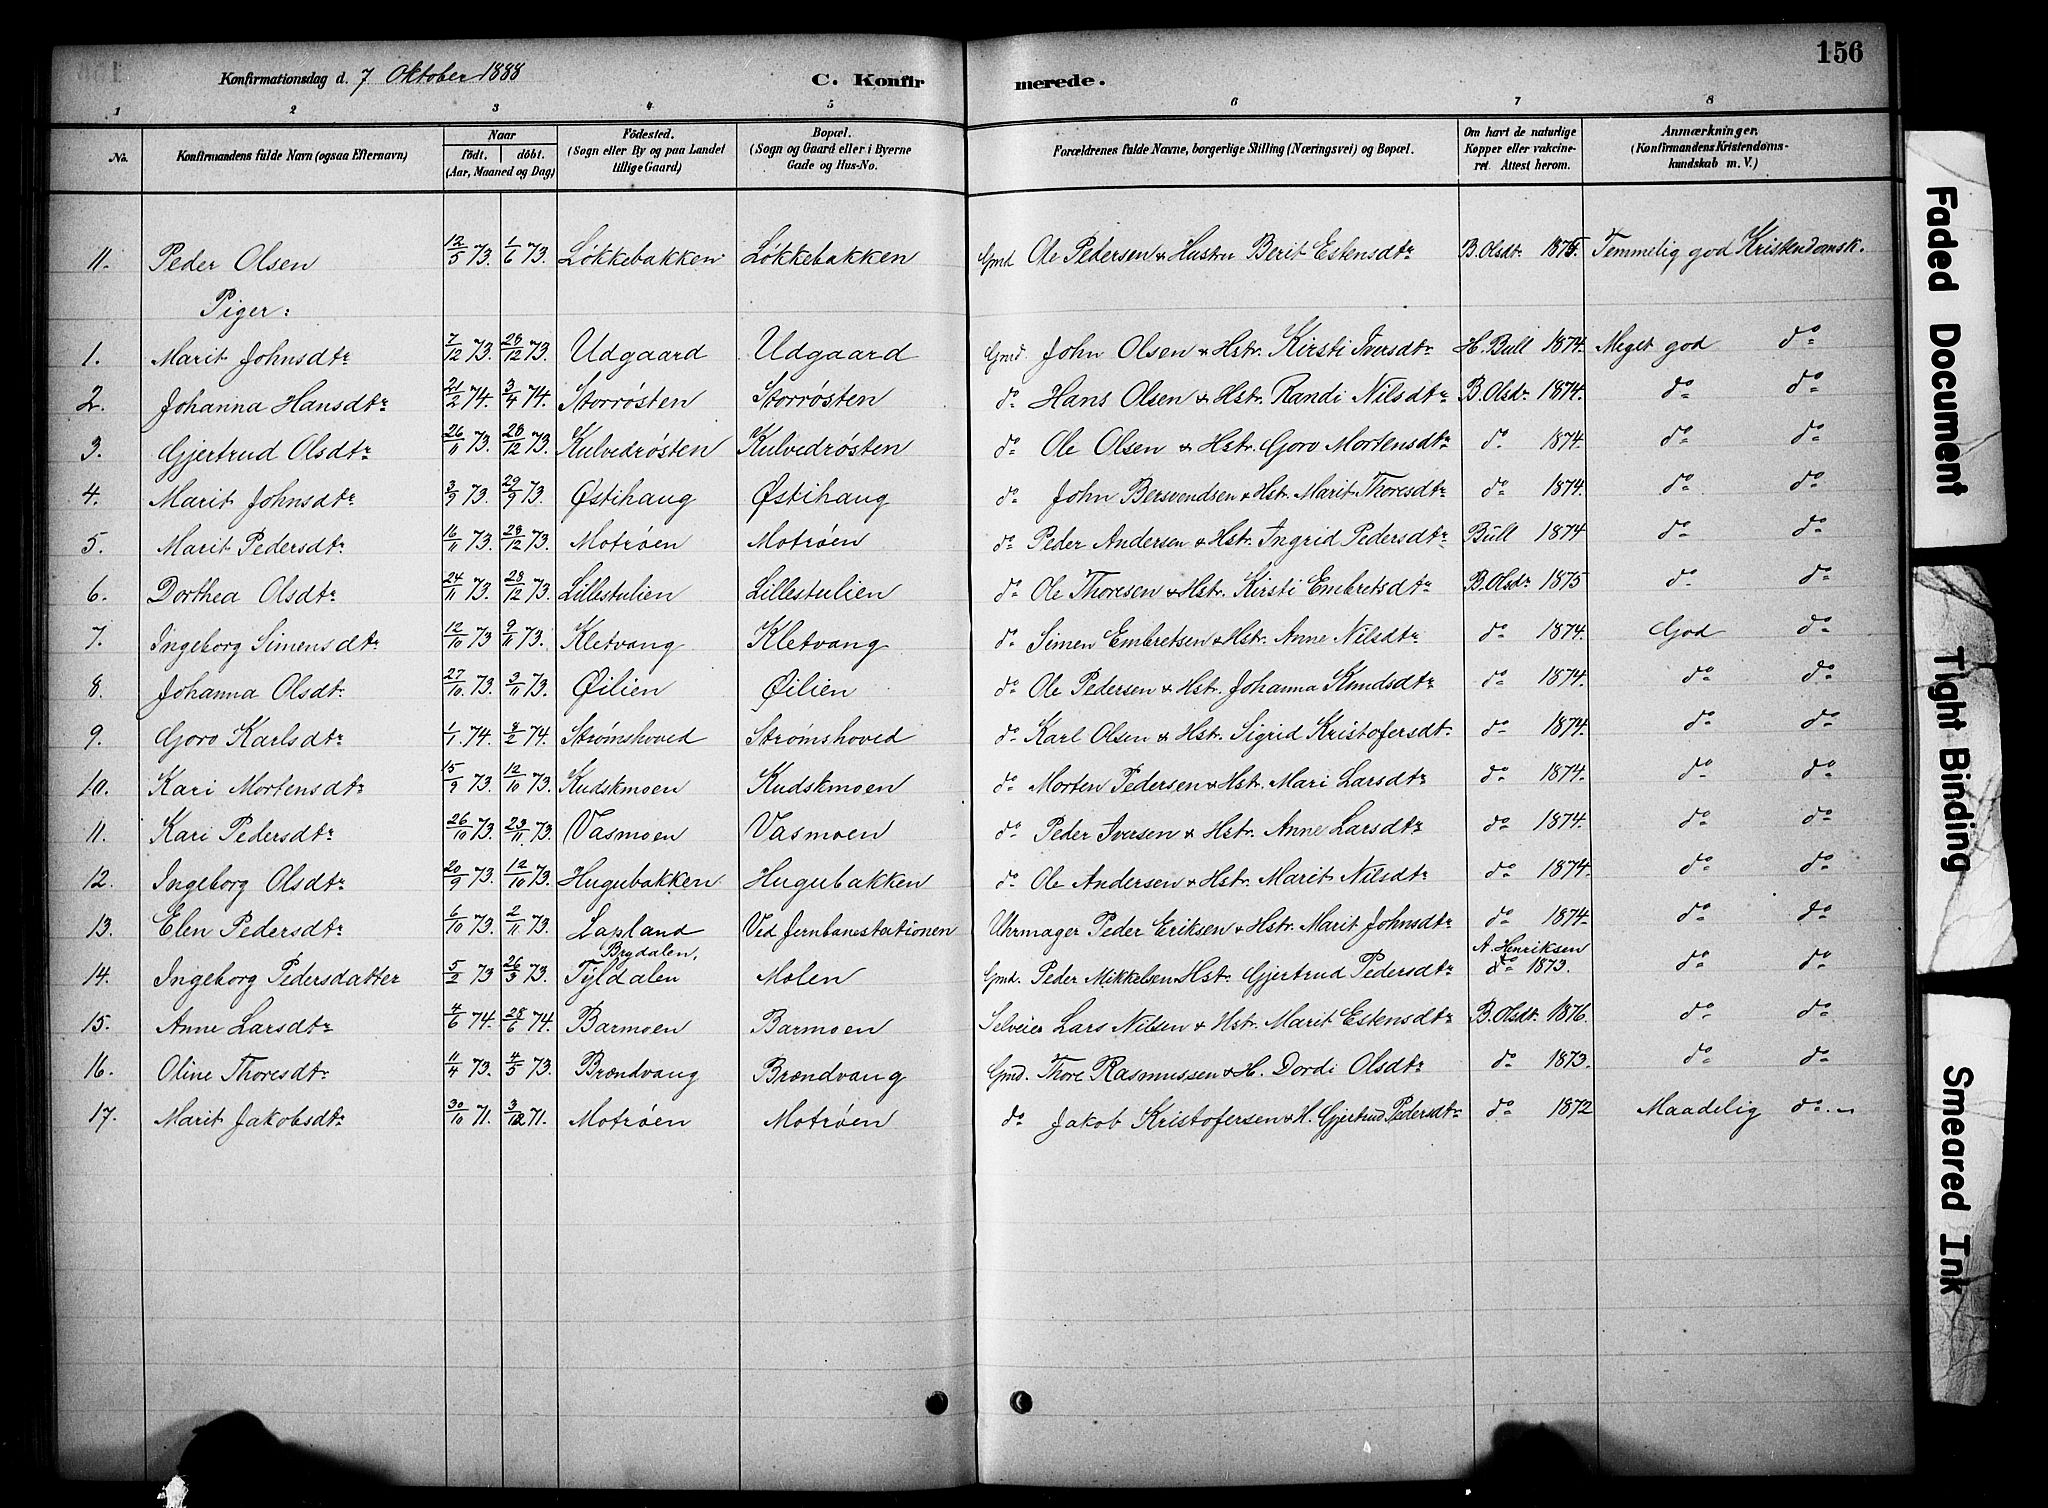 156
Konfirmationsdag d. 7 Oktober 1888 C. Konfirmerede.
1 2 3 4 5 6 7 8
No. Konfirmandens fulde Navn (ogsaa Efternavn) Naar födt. döbt. (Aar, Maaned og Dag) Födested. (Sogn eller By og paa Landet tillige Gaard) Bopæl. (Sogn og Gaard eller i Byerne Gade og Hus-No. Forældrenes fulde Navne, borgerlige Stilling (Næringsvei) og Bopæl. Om havt de naturlige Kopper eller vakcineret. Attest herom. Anmærkninger. (Konfirmandens Kristendomskundskab m. V.)
11. Peder Olsen 12/5 73. 1/6 73. Løkkebakken Løkkebakken Gmd Ole Pedersen & Hustru Berit Estensdtr B. Olsdt. 1875. Temmelig god Kristendomsk.
Piger:
1. Marit Johnsdtr 7/12 73. 28/12 73. Udgaard Udgaard Gmd. John Olsen & Hstr. Kirsti Iversdtr H. Bull 1874. Meget god do
2. Johanna Hansdtr 21/2 74. 3/4 74. Storrøsten Storrøsten do Hans Olsen & Hstr. Randi Nilsdtr B. Olsdr. 1874. do do
3. Gjertrud Olsdtr 26/11 73. 28/12 73. Kulvedrøsten Kulvedrøsten do Ole Olsen & Hstr. Goro Mortensdtr do 1874. do do
4. Marit Johnsdtr 3/9 73. 29/9 73. Østihaug Østihaug do John Bersvendsen & Hstr. Marit Thoresdtr do 1874. do do
5. Marit Pedersdtr 16/11 73. 28/12 73. Motrøen Motrøen do Peder Andersen & Hstr. Ingrid Pedersdtr Bull 1874 do do
6. Dorthea Olsdtr 24/11 73. 28/12 73. Lillestulien Lillestulien do Ole Thoresen & Hstr. Kirsti Embretsdtr B. Olsdr. 1875 do do
7. Ingeborg Simensdtr 12/10 73 9/11 73. Kletvang Kletvang do Simen Embretsen & Hstr. Anne Nilsdtr do 1874. God do
8. Johanna Olsdtr 27/10 73. 3/11 73. Øilien Øilien do Ole Pedersen & Hstr. Johanna Knudsdtr do 1874. do do
9. Goro Karlsdtr 1/1 74. 8/2 74. Strømshoved Strømshoved do Karl Olsen & Hstr. Sigrid Kristofersdt. do 1874. do do
10. Kari Mortensdtr 15/9 73. 12/10 73. Kudskmoen Kudskmoen do Morten Pedersen & Hstr. Mari Larsdtr do 1874. do do
11. Kari Pedersdtr 26/10 73. 23/11 73. Vasmoen Vasmoen do Peder Iversen & Hstr. Anne Larsdtr do 1874. do do
12. Ingeborg Olsdtr 20/9 73. 12/10 73. Hugubakken Hugubakken do Ole Andersen & Hstr. Marit Nilsdtr do 1874. do do
13. Elen Pedersdtr 6/10 73. 2/11 73. Lapland Ved Jernbanestationen Uhrmager Peder Eriksen & Hstr. Marit Johnsdtr do 1874. do do
14. Ingeborg Pedersdatter 5/2 73 26/3 73. Brydalen, Tyldalen Moten Gmd. Peder Mikkelsen Hstr. Gjertrud Pedersdtr A. Henriksen do 1873. do do
15. Anne Larsdtr 4/6 74. 28/6 74. Barmoen Barmoen Selveier Lars Nilsen & Hstr. Marit Estensdtr B. Olsdt. 1876. do do
16. Oline Thoresdtr 11/4 73. 4/5 73. Brændvang Brændvang Gmd. Thore Rasmussen & H. Dordi Olsdtr do 1873. do do
17. Marit Jakobsdtr 30/10 71. 3/12 71. Motrøen Motrøen do Jakob Kristofersen & H. Gjertrud Pedersdtr do 1872 Maadelig do
Faded Document
Tight Binding
Smeared Ink